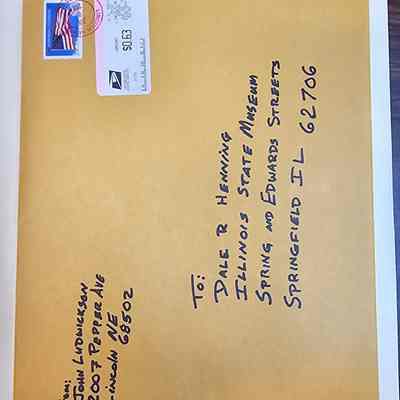 $0.63
From:
John Ludwickson
2007 Pepper Ave
Lincoln NE
68502
To:
Dale R Henning
Illinois State Museum
Spring and Edwards Streets
Springfield IL 62706